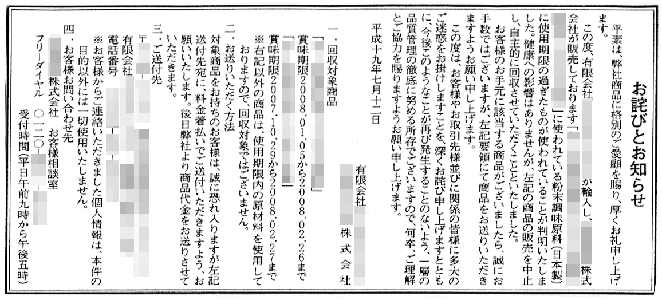 お詫びとお知らせ
平素は、弊社商品に格別のご愛顧を賜り、厚くお礼申し上げ
ます。
この度、有限会社 が輸入し、 株式
会社が販売しております「
」に使われている粉末調味原料(日本製)
に使用期限の過ぎたものが使われていることが判明いたしま
した。健康への影響はありませんが、左記の商品の販売を中止
し、自主的に回収させていただくことといたしました。
お客様のお手元に該当する商品がございましたら、誠にお
手数ではございますが、左記要領にて商品をお送りいただき
ますようお願い申し上げます。
この度は、お客様やお取引先様並びに関係の皆様に多大の
ご迷惑をお掛けしますことを、深くお詫び申し上げますととも
に、今後このようなことが再び発生することのないよう、一層の
品質管理の徹底に努める所存でございますので、何卒、ご理解
とご協力を賜りますようお願い申し上げます。
平成十九年七月十二日
有限会社
株式会社
一、回収対象商品
「 」
賞味期限2008.01.05から2008.02.26まで
「 」
賞味期限2007.10.29から2008.02.27まで
※右記以外の商品は、使用期限内の原材料を使用して
おりますので、回収対象ではございません。
二、お送りいただく方法
対象商品をお持ちのお客様は、誠に恐れ入りますが左記
送付先宛に、料金着払いでご送付いただきますよう、お
願いいたします。後日弊社より商品代金をお送りさせて
いただきます。
三、ご送付先
〒
有限会社
電話番号
※お客様からご連絡いただきました個人情報は、本件の
目的以外には一切使用いたしません。
四、お客様お問い合わせ先
株式会社 お客様相談室
フリーダイヤル 〇一二〇 受付時間(平日午前九時から午後五時)